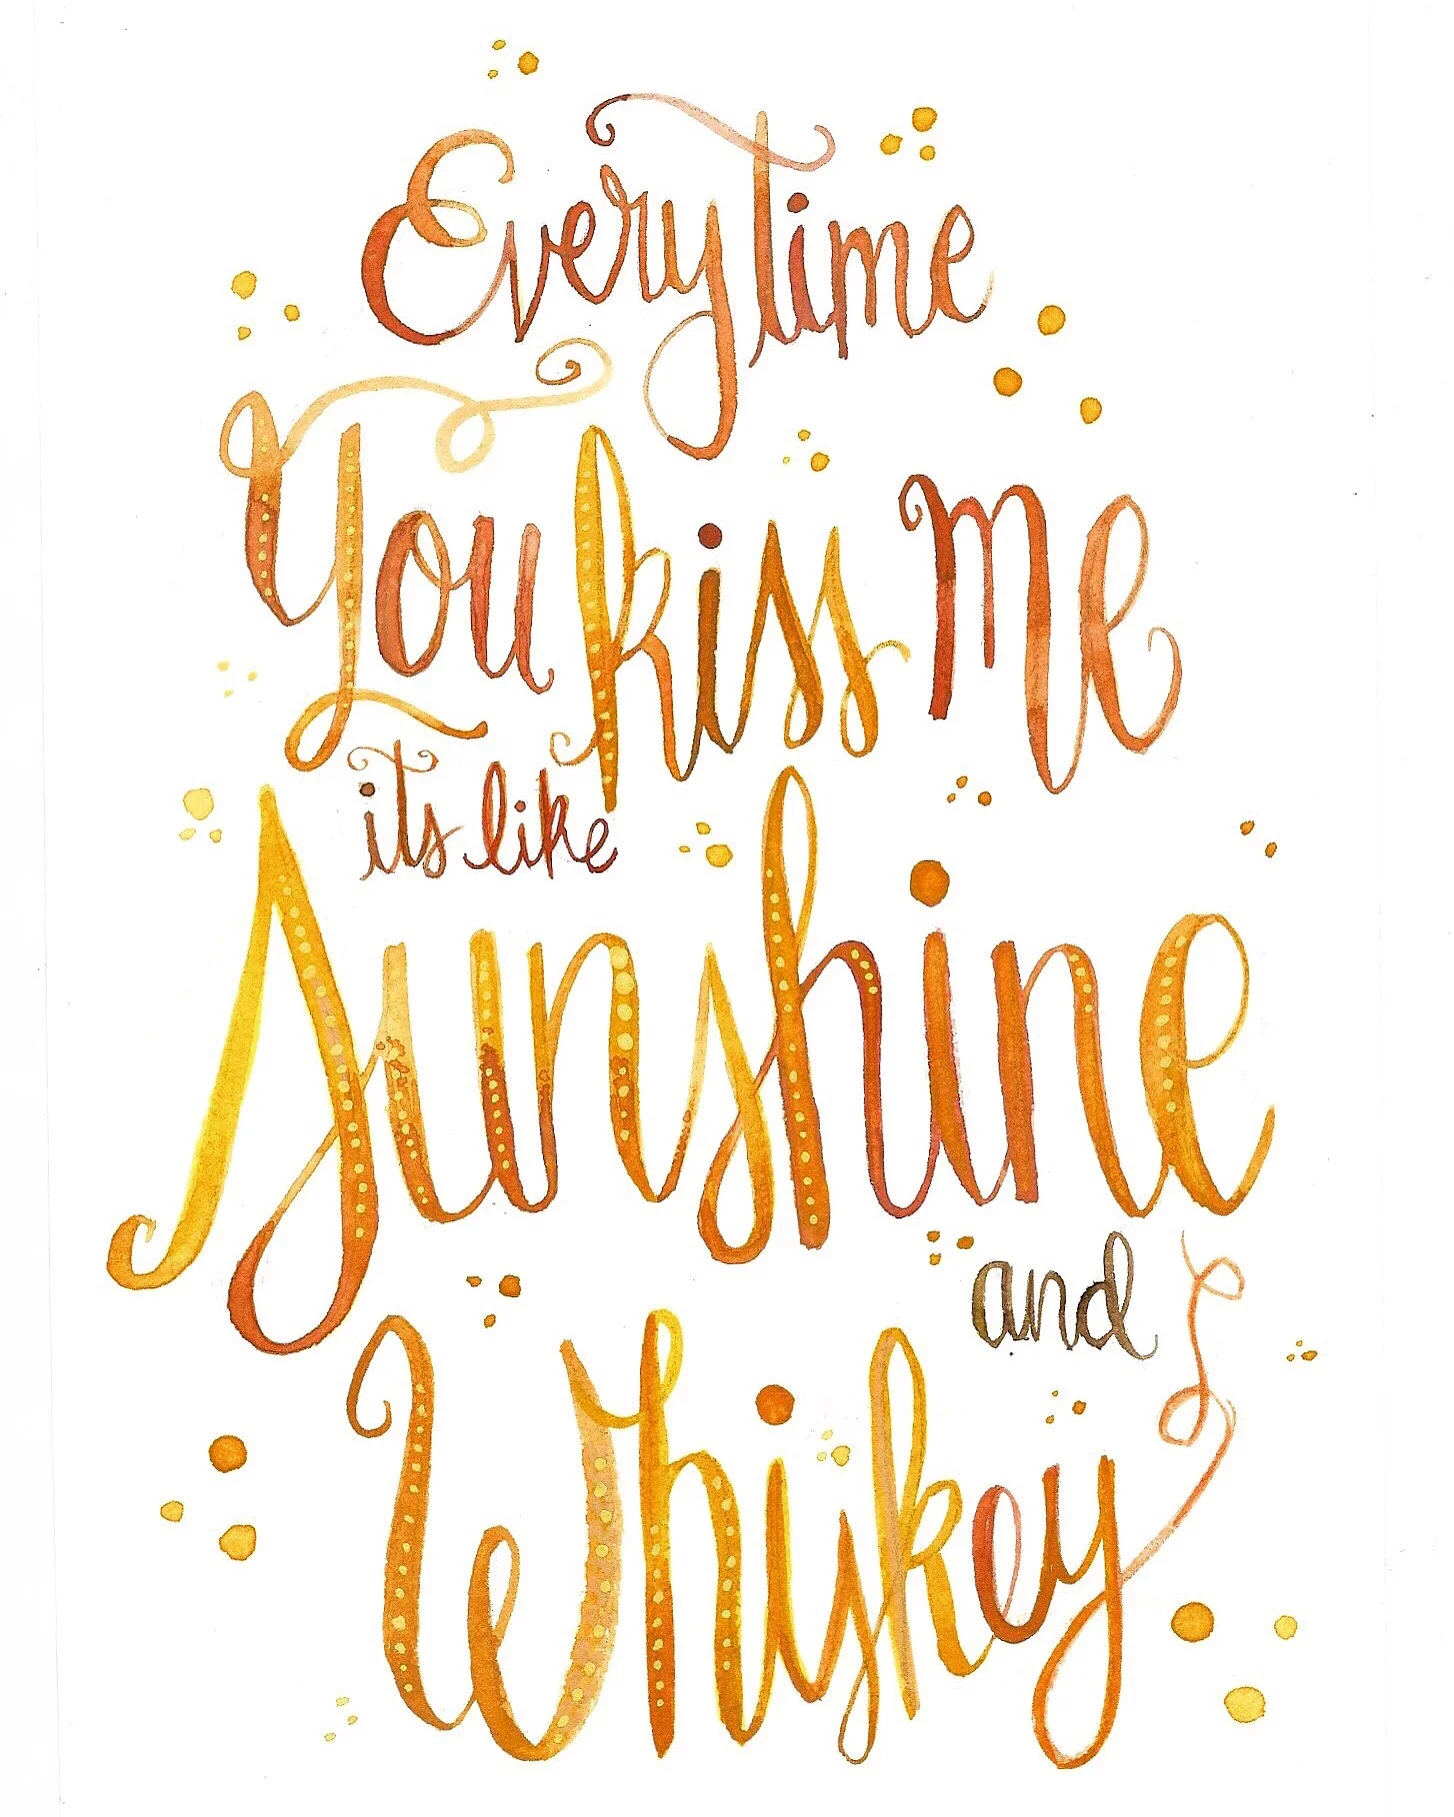 Every time
You kiss me
its like
Sunshine
and
Whiskey